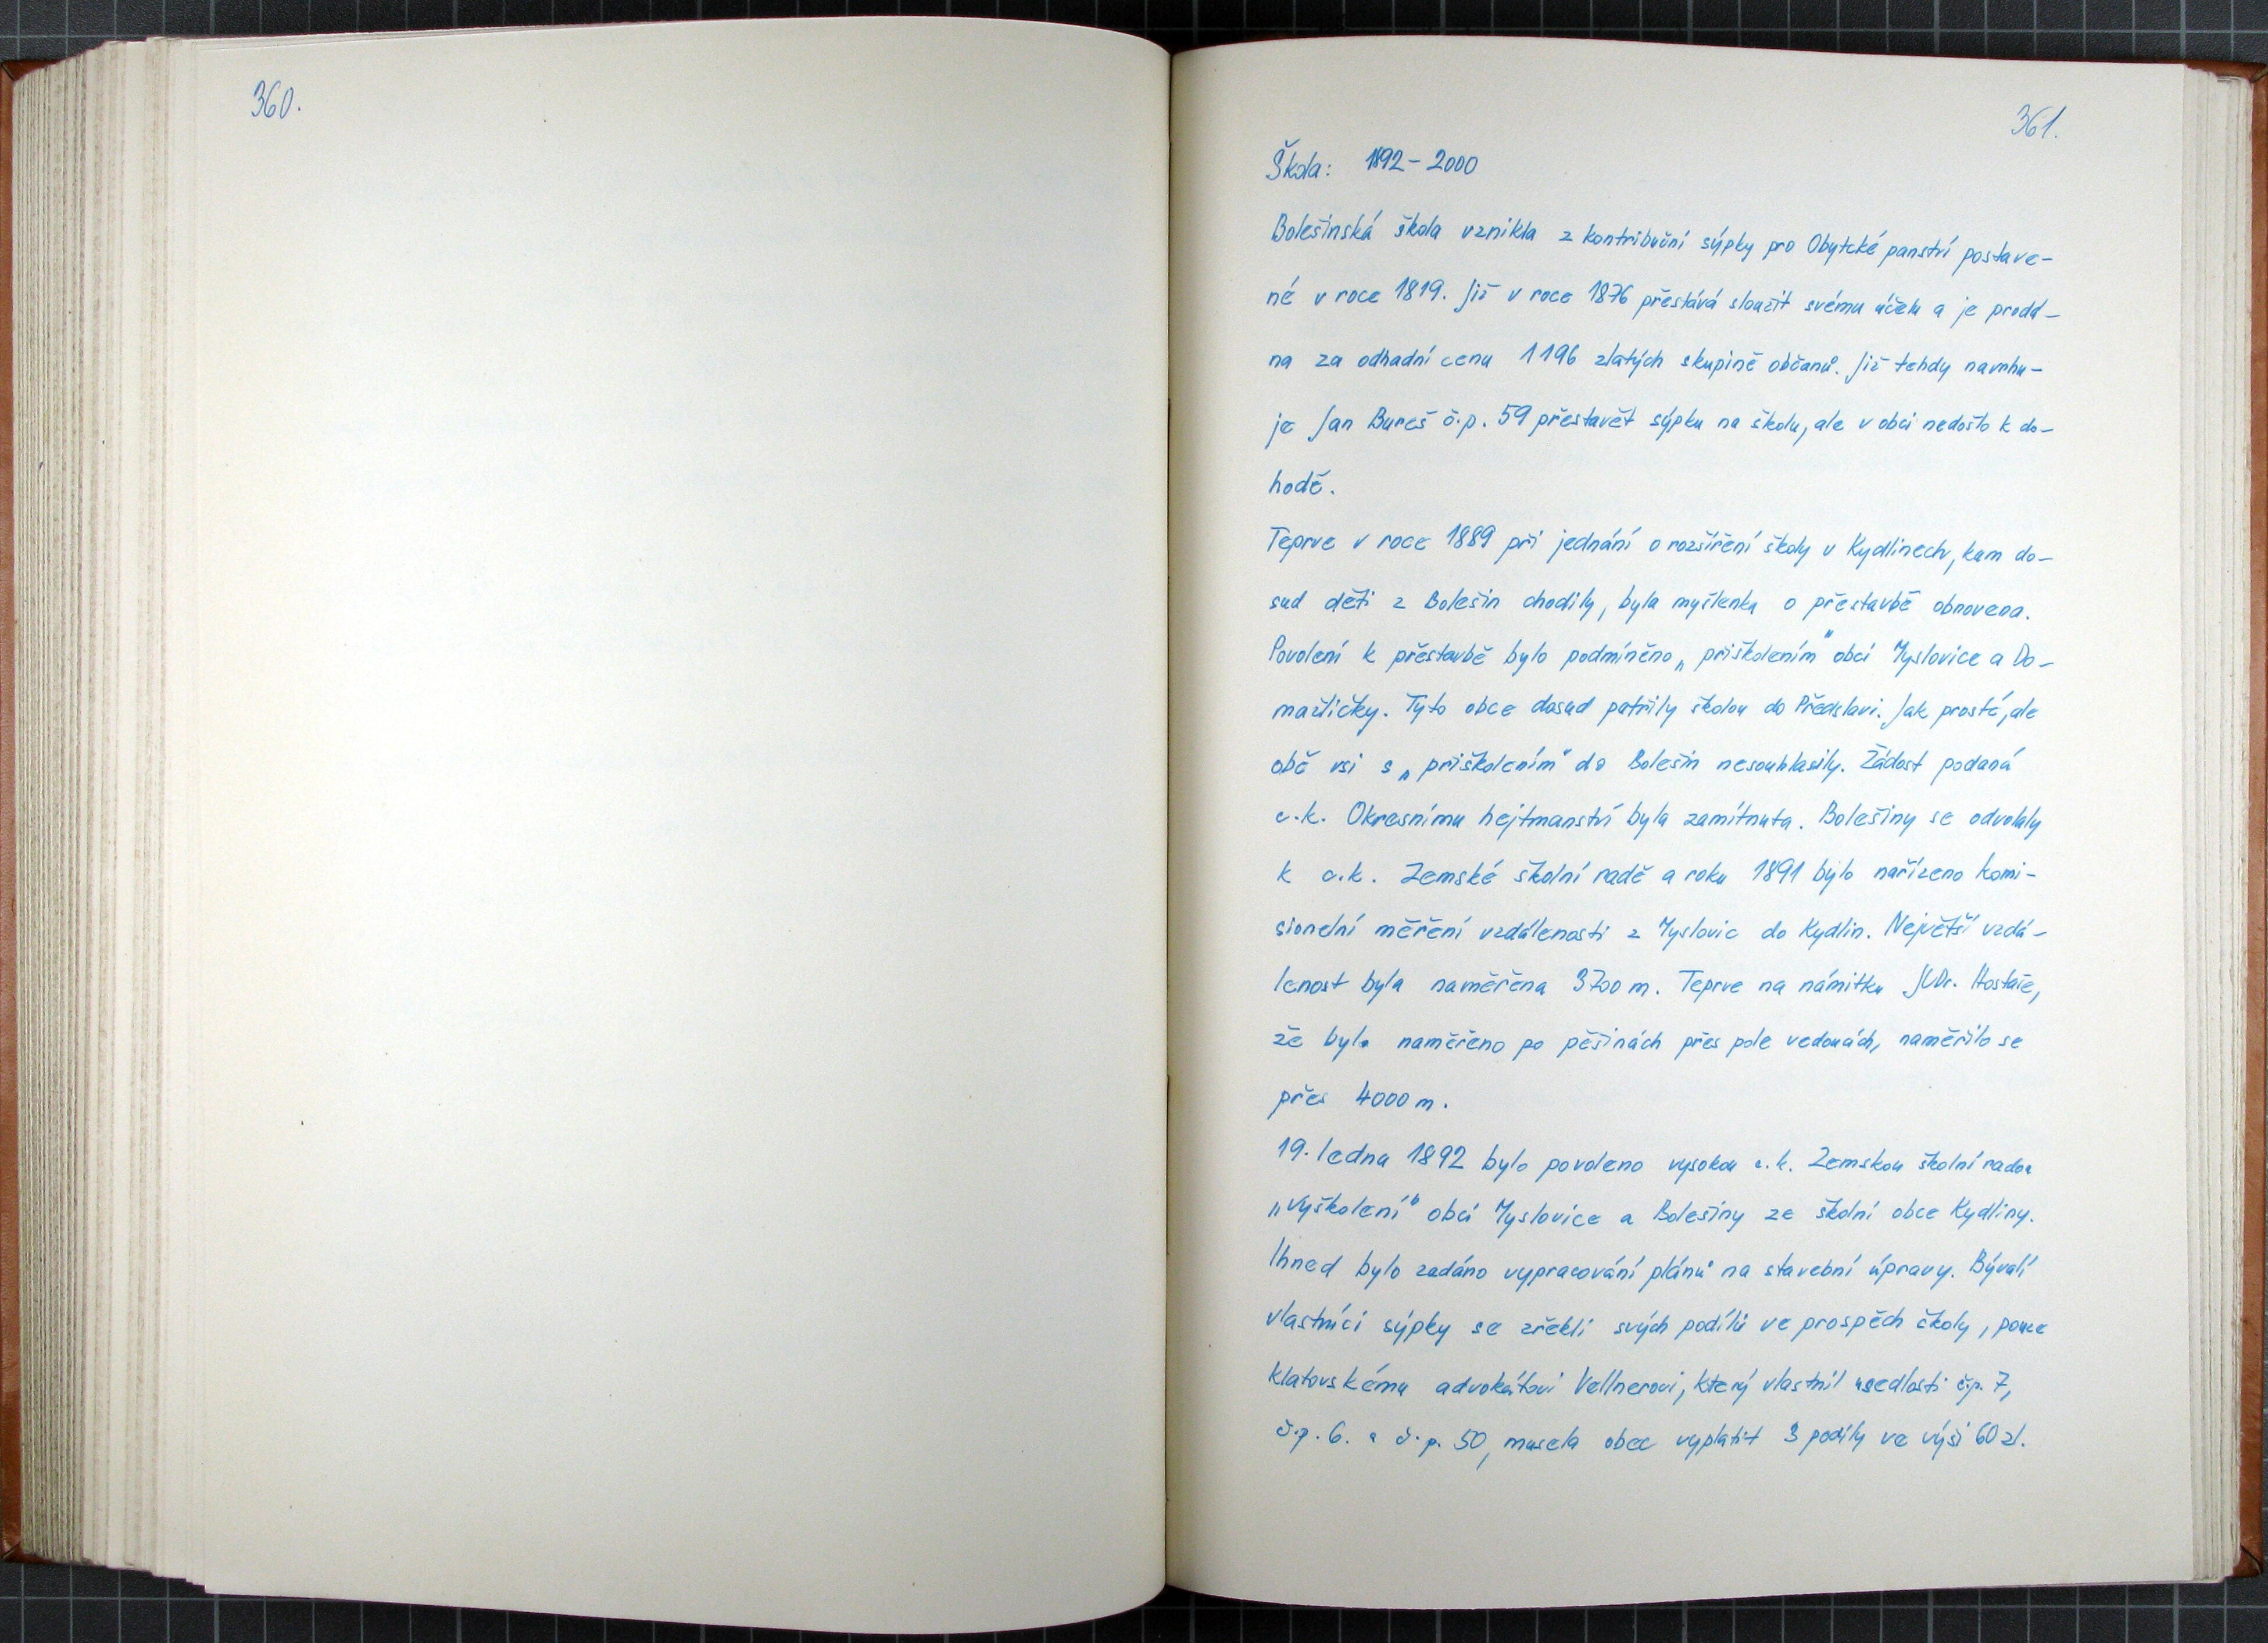 360.
361.
Škola: 1892-2000
Bolešinská škola vznikla z kontribuční sýpky pro Obytcké panství postave-
né v roce 1819. Již v roce 1876 přestává sloužit svému účelu a je prodá-
na za odhadní cenu 1196 zlatých skupině občanů. Již tehdy navrhu-
je Jan Bureš č.p. 59 přestavět sýpku na školu, ale v obci nedošlo k do-
hodě.
Teprve v roce 1889 při jednání o rozšíření školy v Kydlinech, kam do-
sud děti z Bolešin chodily, byla myšlenka o přestavbě obnovena.
Povolení k přestavbě bylo podmíněno „přiškolením" obcí Myslovice a Do-
mažličky. Tyto obce dosud patřily školou do Předslavi. Jak prosté, ale
obě vsi s „přiškolením" do Bolešin nesouhlasily. Žádost podaná
c.k. Okresnímu hejtmanství byla zamítnuta. Bolešiny se odvolaly
k c.k. Zemské školní radě a roku 1891 bylo nařízeno komi-
sionelní měření vzdálenosti z Myslovic do Kydlin. Největší vzdá-
lenost byla naměřena 3700 m. Teprve na námitku JUDr. Hostaše,
že bylo naměřeno po pěšinách přes pole vedoucích, naměřilo se
přes 4000 m.
19. ledna 1892 bylo povoleno vysokou c.k. Zemskou školní radou
„vyškolení" obcí Myslovice a Bolešiny ze školní obce Kydliny.
Ihned bylo zadáno vypracování plánů na stavební úpravy. Bývalí
vlastníci sýpky se zřekli svých podílů ve prospěch školy, pouze
klatovskému advokátovi Vellnerovi, který vlastnil usedlosti č.p. 7,
č.p. 6. a č.p. 50, musela obec vyplatit 3 podíly ve výši 60 zl.